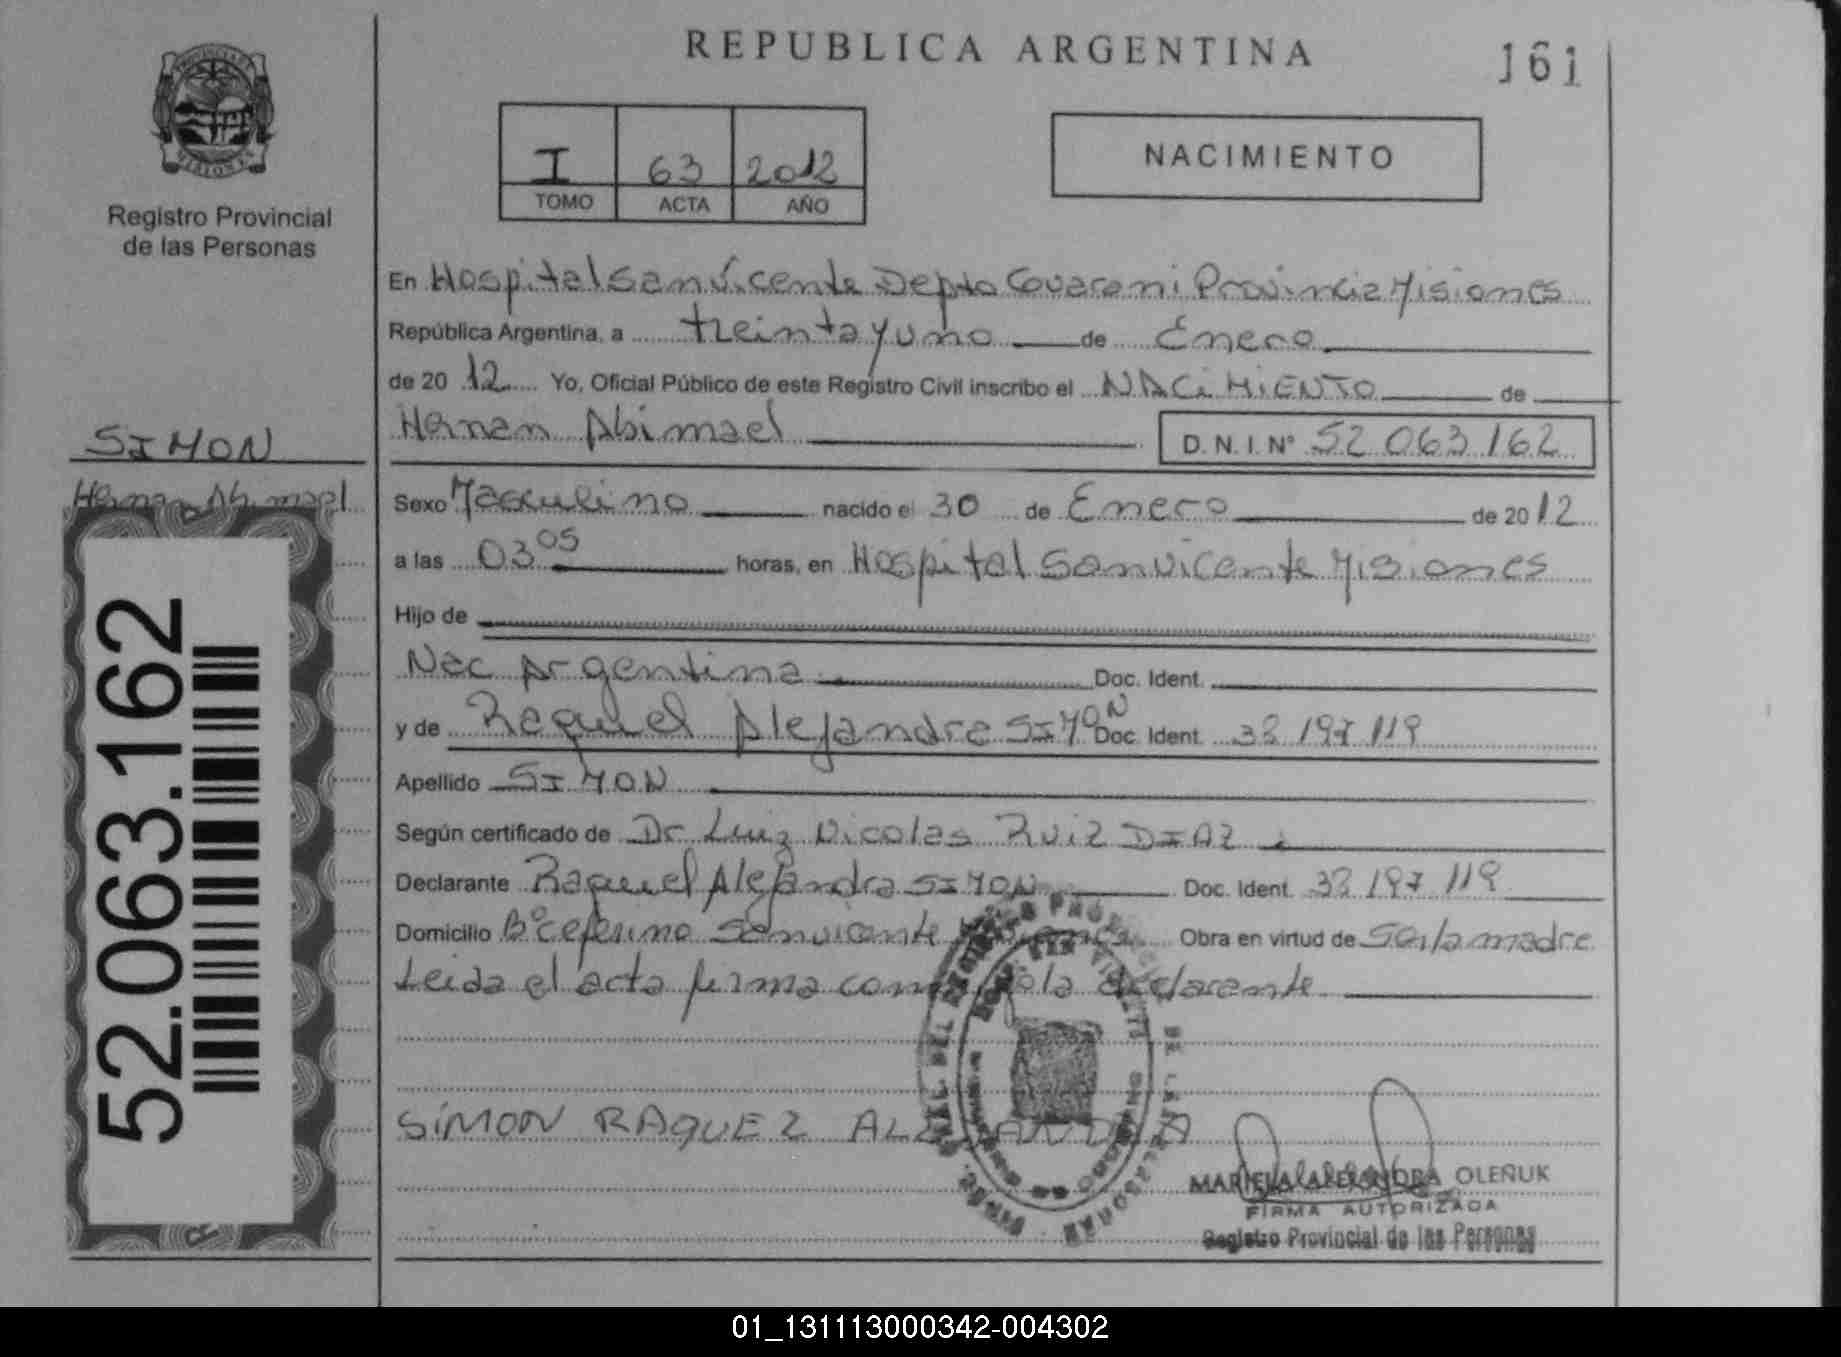 REPUBLICA ARGENTINA
161
PROVINCIA DE
MISIONES
Registro Provincial
de las Personas
I 63 2012
TOMO ACTA AÑO
NACIMIENTO
En Hospital San Vicente Depto Guarani Provincia Misiones
República Argentina, a treinta y uno de Enero
de 20 12 Yo, Oficial Público de este Registro Civil inscribo el NACIMIENTO de
Hernan Abimael D.N.I. Nº 52.063.162
SIMON
Hernan Abimael
Sexo Masculino nacido el 30 de Enero de 2012
a las 03 05 horas, en Hospital San Vicente Misiones
Hijo de
Nac Argentina Doc. Ident.
y de Raquel Alejandra SIMON Doc. Ident. 33 197 119
Apellido SIMON
Según certificado de Dr Luiz Nicolas Ruiz DIAZ
Declarante Raquel Alejandra SIMON Doc. Ident. 33 197 119
Domicilio Bº Ceferino San vicente Misiones Obra en virtud de Ser la madre
Leida el acta firma conmigo la declarante
SIMON RAQUEL ALEJANDRA
MARIELA ALEJANDRA OLEÑUK
FIRMA AUTORIZADA
Registro Provincial de las Personas
52.063.162
01_131113000342-004302